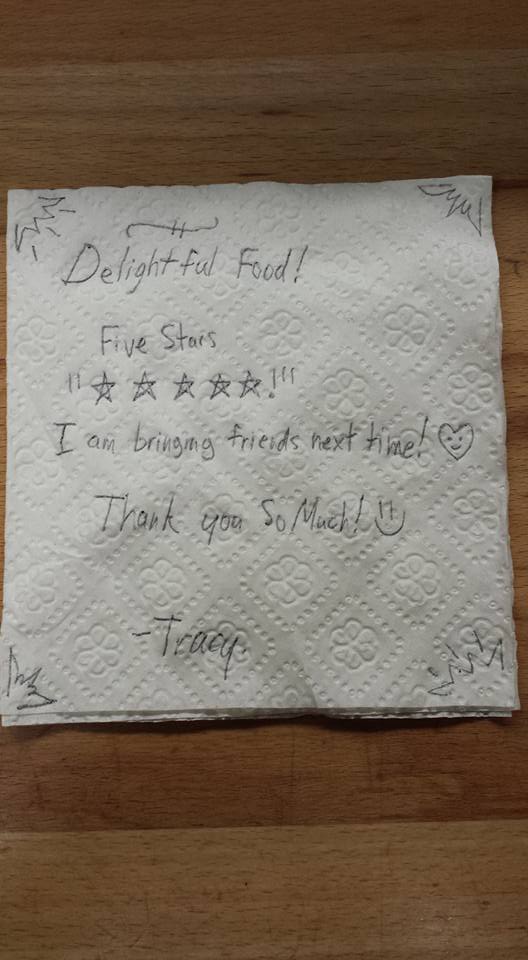 Delightful Food!
Five Stars
"☆ ☆ ☆ ☆ ☆!"
I am bringing friends next time!
Thank you So Much!
-Tracy.